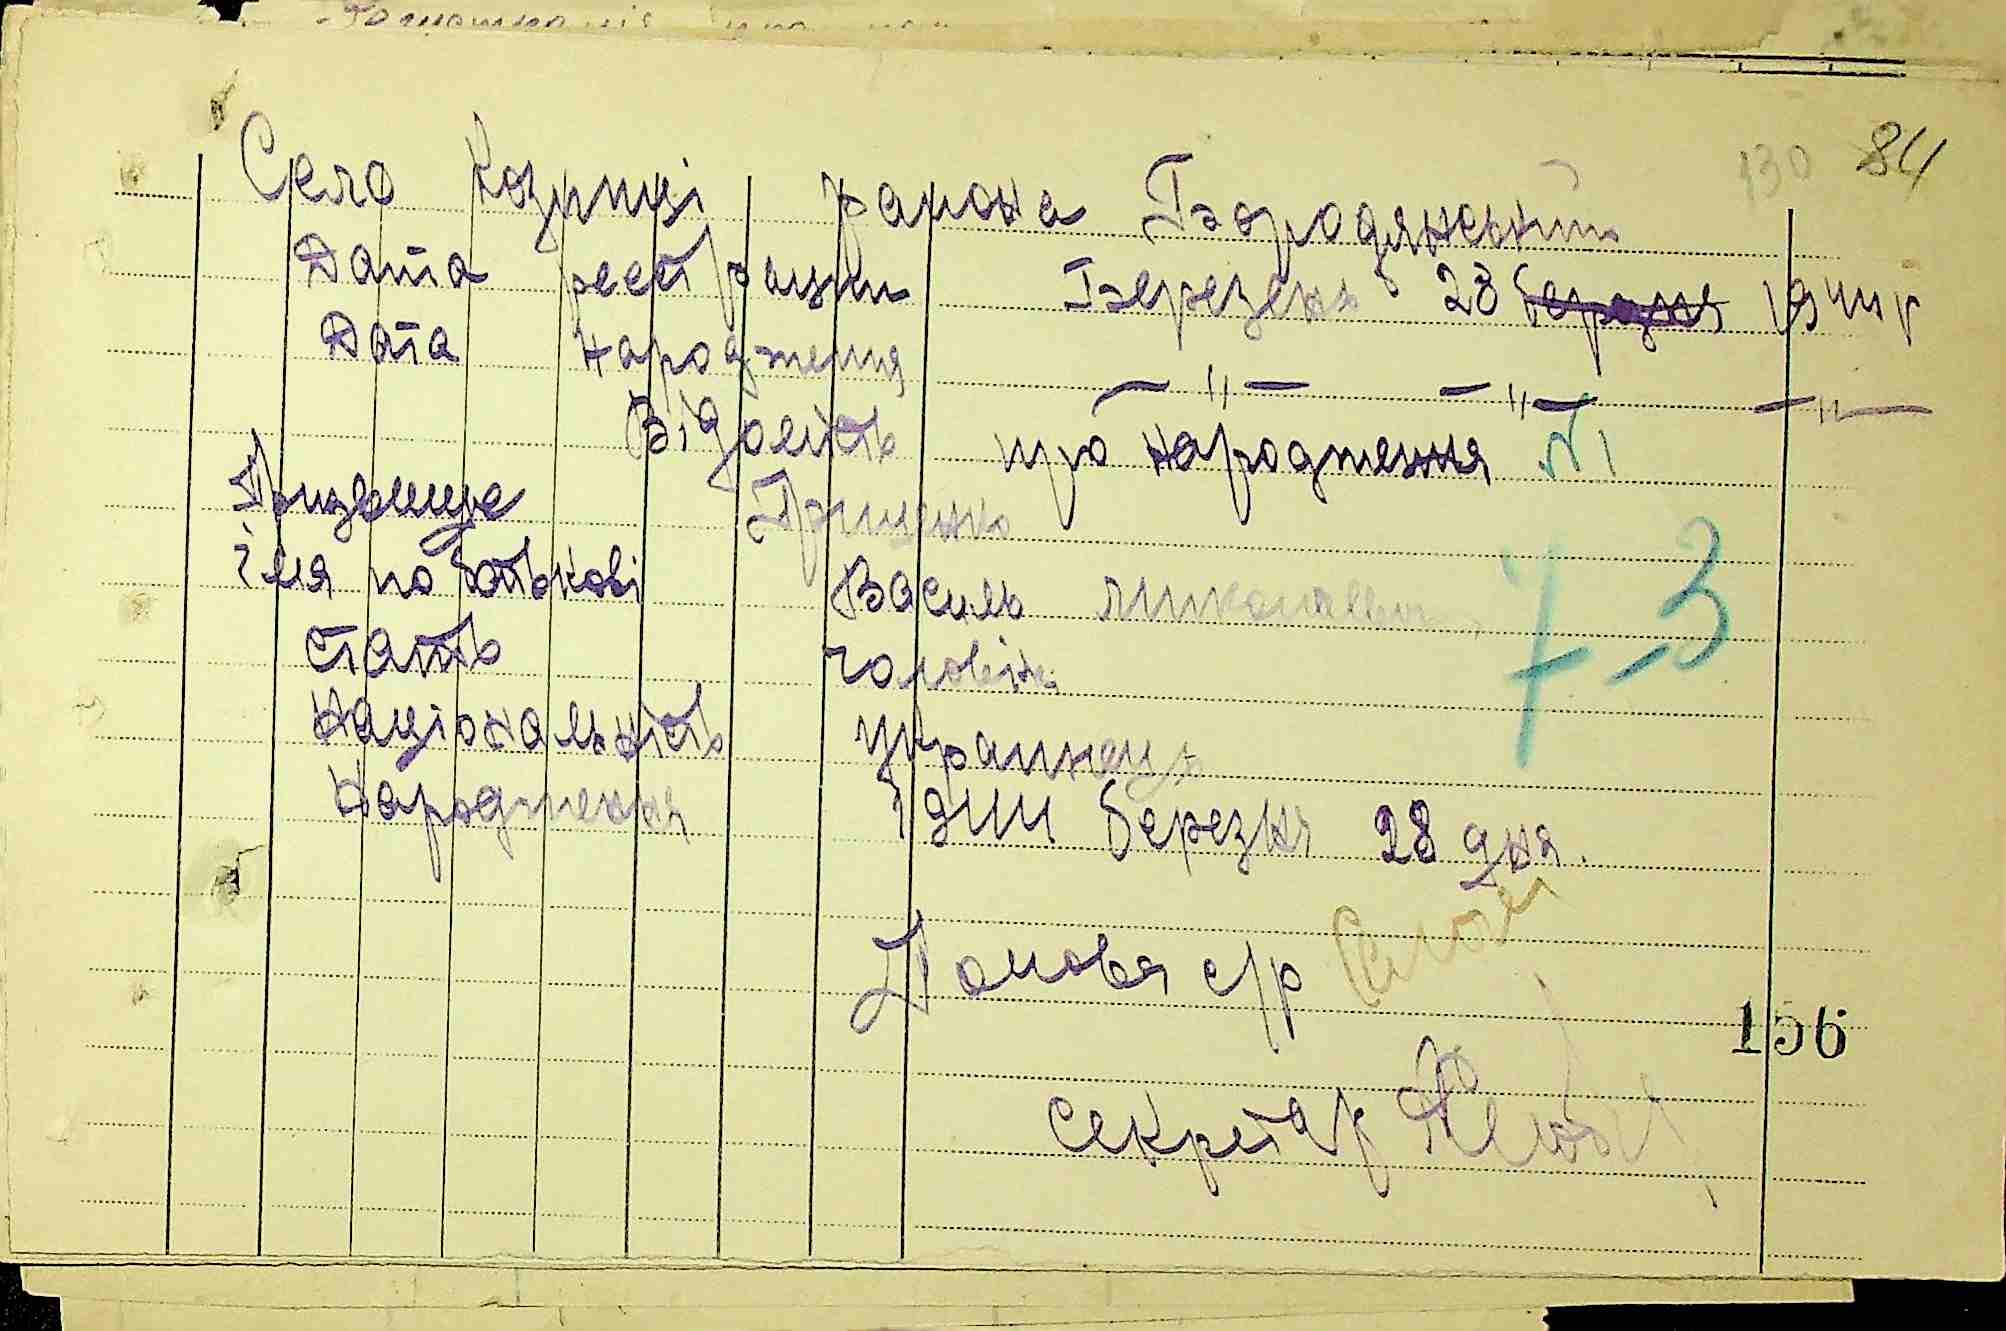 130 84
Село Козинці района Бородянський
Дата реєстрации Березень 28 березня 1944 г
Дата народження — " — — " — — " —
Відомість про народження № 1
Призвище Грищенко
імя по батькові Василь миколаєвич
стать чоловік
7-3
Національність украинець
Народження 1944 березня 28 дня.
Голова с/р
156
секретар